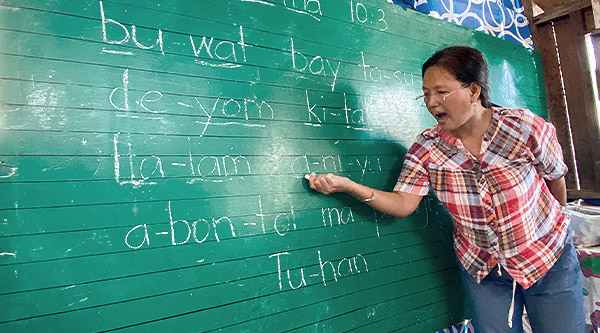 10:3
bu-wat bay ta-su
de-yom ki-ta
a-ni-yu
a-bon-tol ma
Tu-han